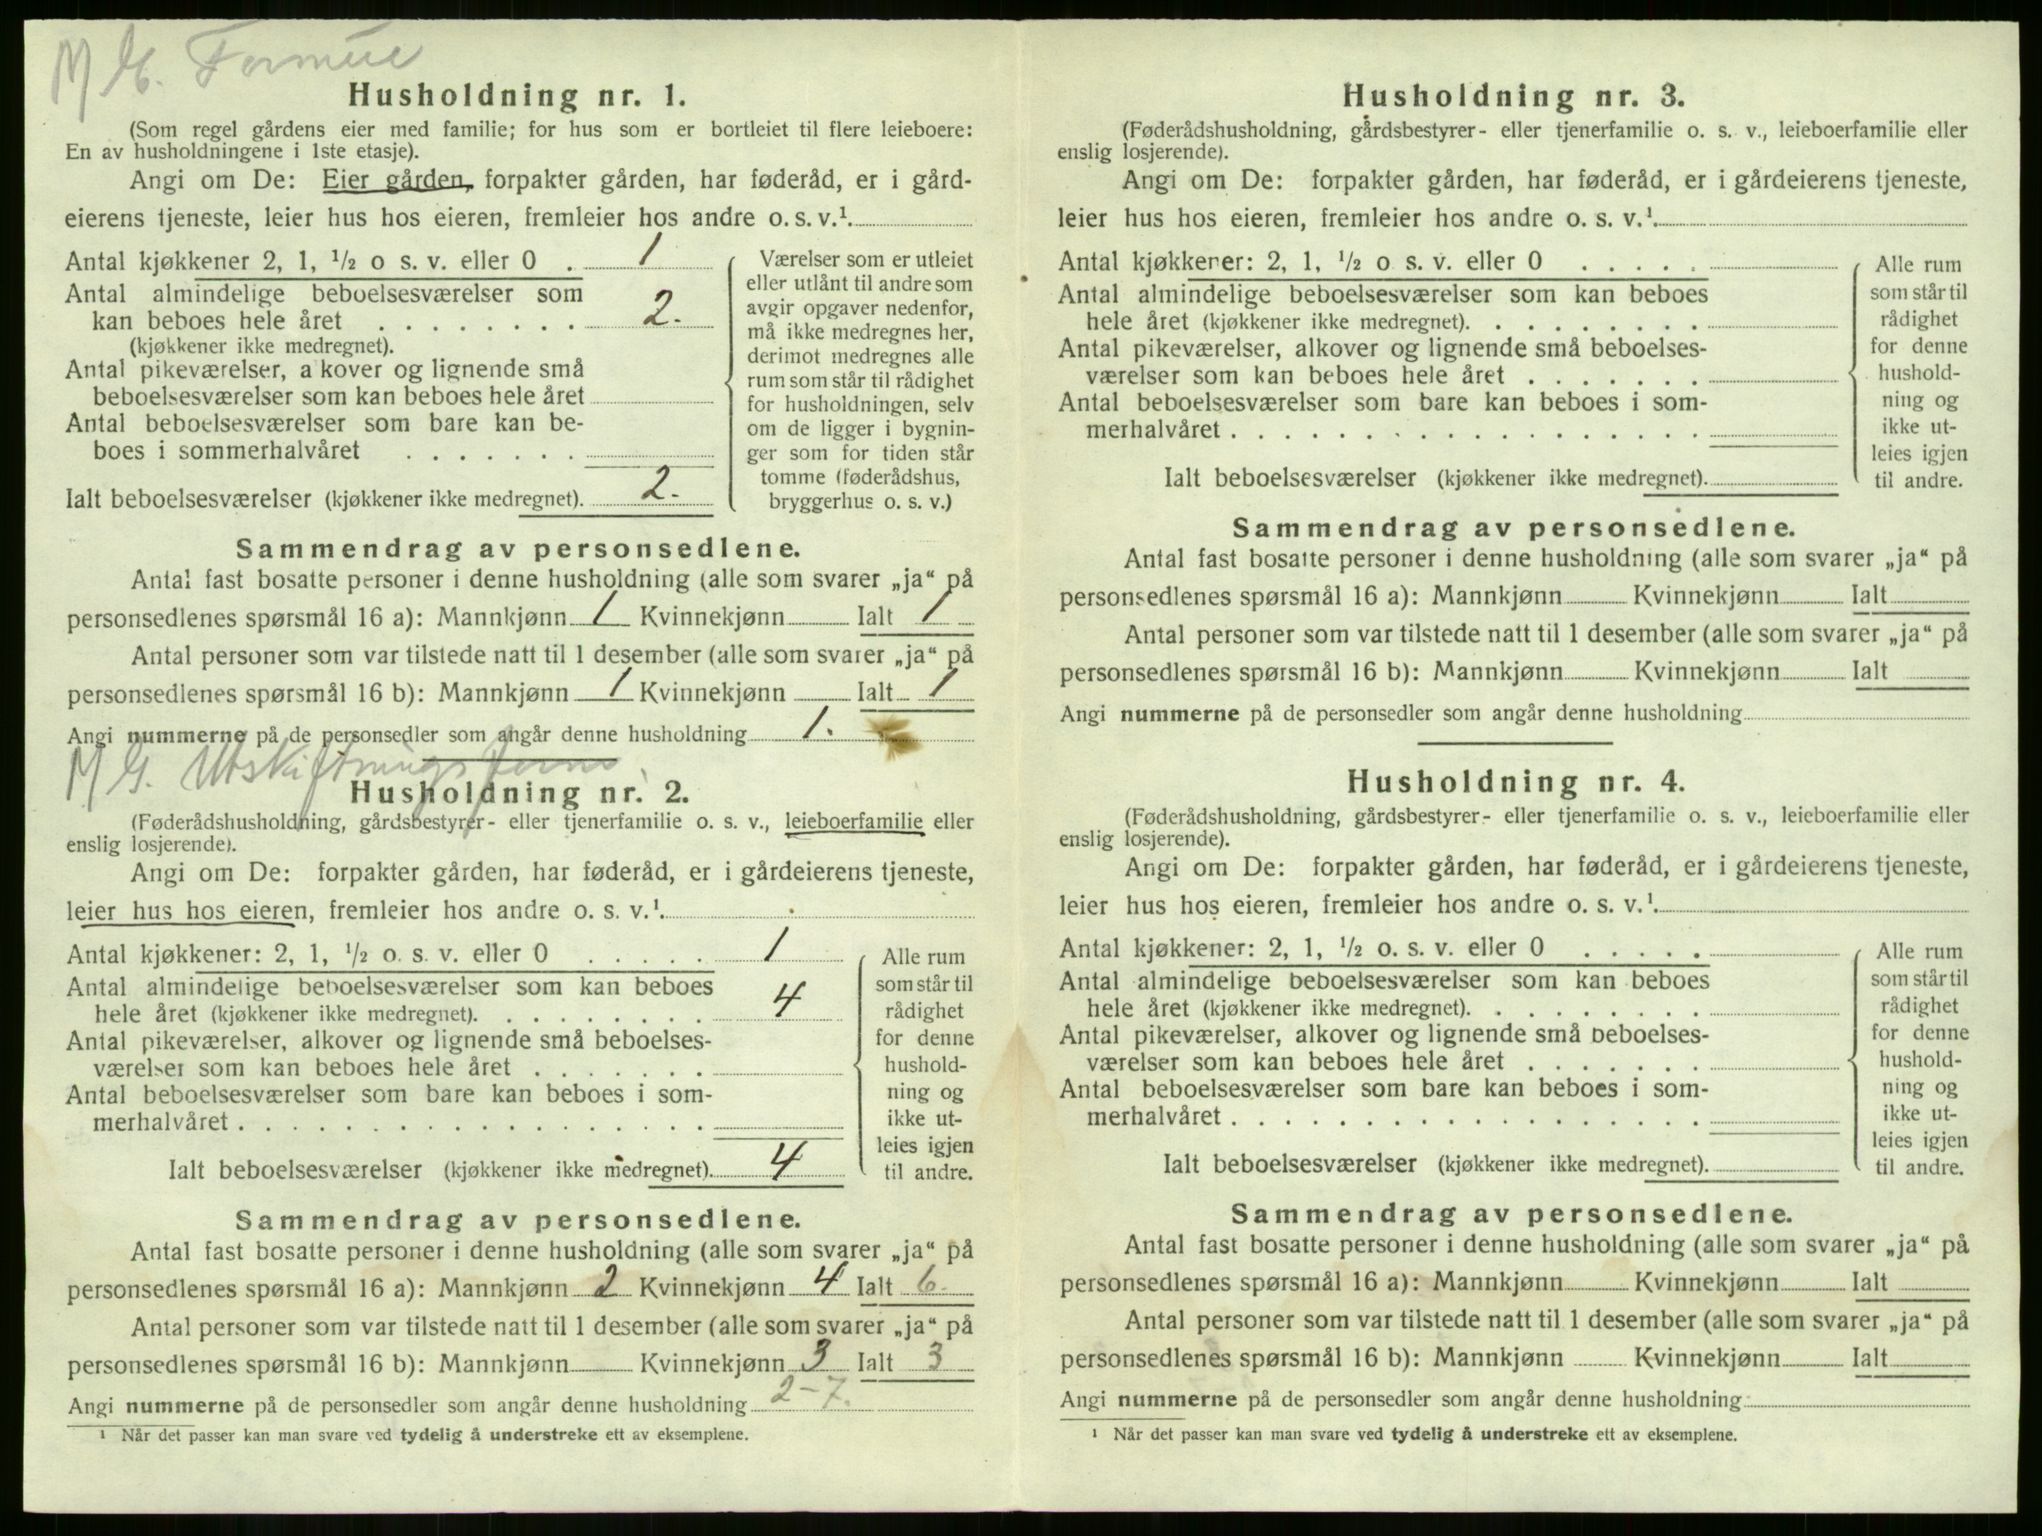 M G. Formue
Husholdning nr. 1.
(Som regel gårdens eier med familie; for hus som er bortleiet til flere leieboere:
En av husholdningene i 1ste etasje).
Angi om De: Eier gården, forpakter gården, har føderåd, er i gård-
eierens tjeneste, leier hus hos eieren, fremleier hos andre o. s. v.¹
Antal kjøkkener 2, 1, ½ o s. v. eller 0 . 1
Antal almindelige beboelsesværelser som
kan beboes hele året . . . . . . . . 2.
(kjøkkener ikke medregnet).
Antal pikeværelser, a kover og lignende små
beboelsesværelser som kan beboes hele året
Antal beboelsesværelser som bare kan be-
boes i sommerhalvåret . . . . . . .
Ialt beboelsesværelser (kjøkkener ikke medregnet). 2.
Værelser som er utleiet
eller utlånt til andre som
avgir opgaver nedenfor,
må ikke medregnes her,
derimot medregnes alle
rum som står til rådighet
for husholdningen, selv
om de ligger i bygnin-
ger som for tiden står
tomme (føderådshus,
bryggerhus o. s. v.)
Sammendrag av personsedlene.
Antal fast bosatte personer i denne husholdning (alle som svarer „ja“ på
personsedlenes spørsmål 16 a): Mannkjønn 1 Kvinnekjønn Ialt 1
Antal personer som var tilstede natt til 1 desember (alle som svarer „ja“ på
personsedlenes spørsmål 16 b): Mannkjønn 1 Kvinnekjønn Ialt 1
Angi nummerne på de personsedler som angår denne husholdning 1.
M G. Utskiftningsform.
Husholdning nr. 2.
(Føderådshusholdning, gårdsbestyrer- eller tjenerfamilie o. s. v., leieboerfamilie eller
enslig losjerende).
Angi om De: forpakter gården, har føderåd, er i gårdeierens tjeneste,
leier hus hos eieren, fremleier hos andre o. s. v.¹
Antal kjøkkener: 2, 1, ½ o. s. v. eller 0 . . . . . 1
Antal almindelige beboelsesværelser som kan beboes
hele året (kjøkkener ikke medregnet). . . . . . . . . 4
Antal pikeværelser, alkover og lignende små beboelses-
værelser som kan beboes hele året . . . . . . .
Antal beboelsesværelser som bare kan beboes i som-
merhalvåret . . . . . . . . . . . . . . . . . .
Ialt beboelsesværelser (kjøkkener ikke medregnet). 4
Alle rum
som står til
rådighet
for denne
hushold-
ning og
ikke ut-
leies igjen
til andre.
Sammendrag av personsedlene.
Antal fast bosatte personer i denne husholdning (alle som svarer „ja“ på
personsedlenes spørsmål 16 a): Mannkjønn 2 Kvinnekjønn 4 Ialt 6.
Antal personer som var tilstede natt til 1 desember (alle som svarer „ja“ på
personsedlenes spørsmål 16 b): Mannkjønn Kvinnekjønn 3 Ialt 3
Angi nummerne på de personsedler som angår denne husholdning 2-7.
¹ Når det passer kan man svare ved tydelig å understreke ett av eksemplene.
Husholdning nr. 3.
(Føderådshusholdning, gårdsbestyrer- eller tjenerfamilie o. s. v., leieboerfamilie eller
enslig losjerende).
Angi om De: forpakter gården, har føderåd, er i gårdeierens tjeneste,
leier hus hos eieren, fremleier hos andre o. s. v.¹
Antal kjøkkener: 2, 1, ½ o s. v. eller 0 . . . . .
Antal almindelige beboelsesværelser som kan beboes
hele året (kjøkkener ikke medregnet). . . . . . . . .
Antal pikeværelser, alkover og lignende små beboelses-
værelser som kan beboes hele året . . . . . . .
Antal beboelsesværelser som bare kan beboes i som-
merhalvåret . . . . . . . . . . . . . . . . . .
Ialt beboelsesværelser (kjøkkener ikke medregnet).
Alle rum
som står til
rådighet
for denne
hushold-
ning og
ikke ut-
leies igjen
til andre.
Sammendrag av personsedlene.
Antal fast bosatte personer i denne husholdning (alle som svarer „ja“ på
personsedlenes spørsmål 16 a): Mannkjønn Kvinnekjønn Ialt
Antal personer som var tilstede natt til 1 desember (alle som svarer „ja“ på
personsedlenes spørsmål 16 b): Mannkjønn Kvinnekjønn Ialt
Angi nummerne på de personsedler som angår denne husholdning
Husholdning nr. 4.
(Føderådshusholdning, gårdsbestyrer- eller tjenerfamilie o. s. v., leieboerfamilie eller
enslig losjerende).
Angi om De: forpakter gården, har føderåd, er i gårdeierens tjeneste,
leier hus hos eieren, fremleier hos andre o. s. v.¹
Antal kjøkkener: 2, 1, ½ o. s. v. eller 0 . . . . .
Antal almindelige beboelsesværelser som kan beboes
hele året (kjøkkener ikke medregnet). . . . . . . . .
Antal pikeværelser, alkover og lignende små beboelses-
værelser som kan beboes hele året . . . . . . .
Antal beboelsesværelser som bare kan beboes i som-
merhalvåret . . . . . . . . . . . . . . . . . .
Ialt beboelsesværelser (kjøkkener ikke medregnet).
Alle rum
som står til
rådighet
for denne
hushold-
ning og
ikke ut-
leies igjen
til andre.
Sammendrag av personsedlene.
Antal fast bosatte personer i denne husholdning (alle som svarer „ja“ på
personsedlenes spørsmål 16 a): Mannkjønn Kvinnekjønn Ialt
Antal personer som var tilstede natt til 1 desember (alle som svarer „ja“ på
personsedlenes spørsmål 16 b): Mannkjønn Kvinnekjønn Ialt
Angi nummerne på de personsedler som angår denne husholdning
¹ Når det passer kan man svare ved tydelig å understreke ett av eksemplene.